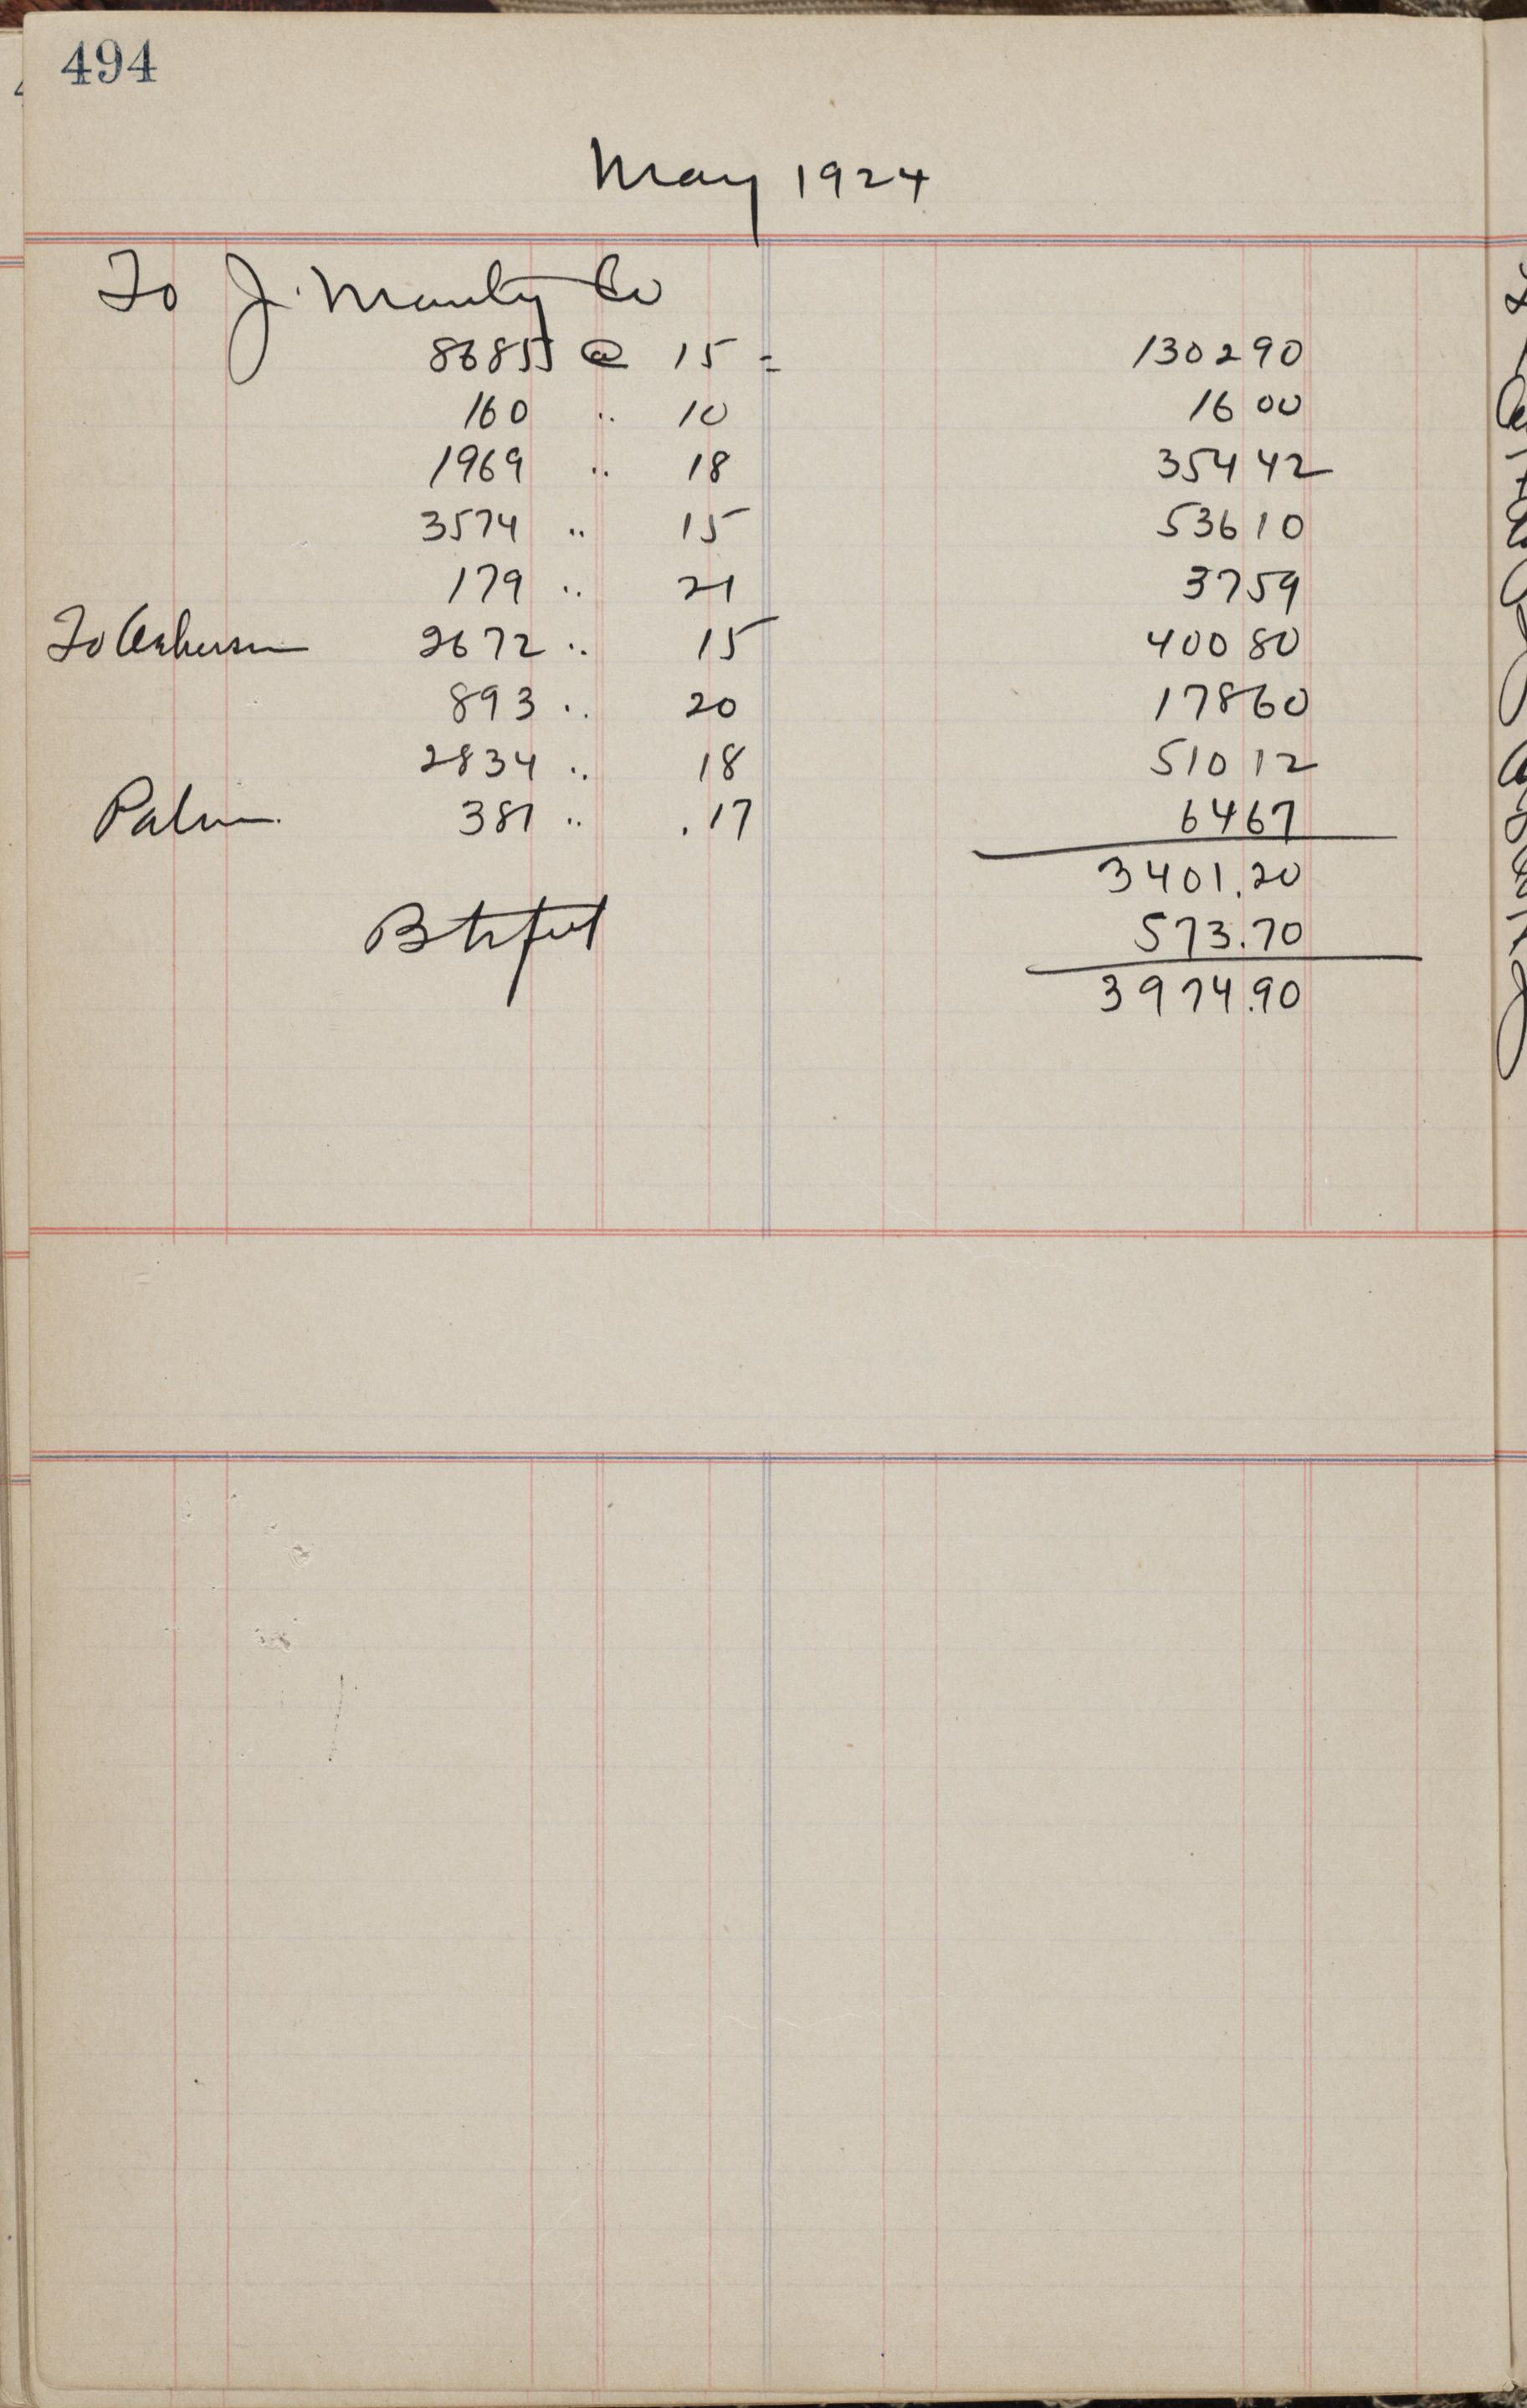 494
May 1924
To J. Manty Co
8685 @ 15 = 130290
160 .. 10 1600
1969 .. 18 35442
3574 .. 15 53610
179 .. 21 3759
To 2672 .. 15 40080
893 .. 20 17860
2834 .. 18 51012
381 .. .17 6467
3401.20
573.70
3974.90